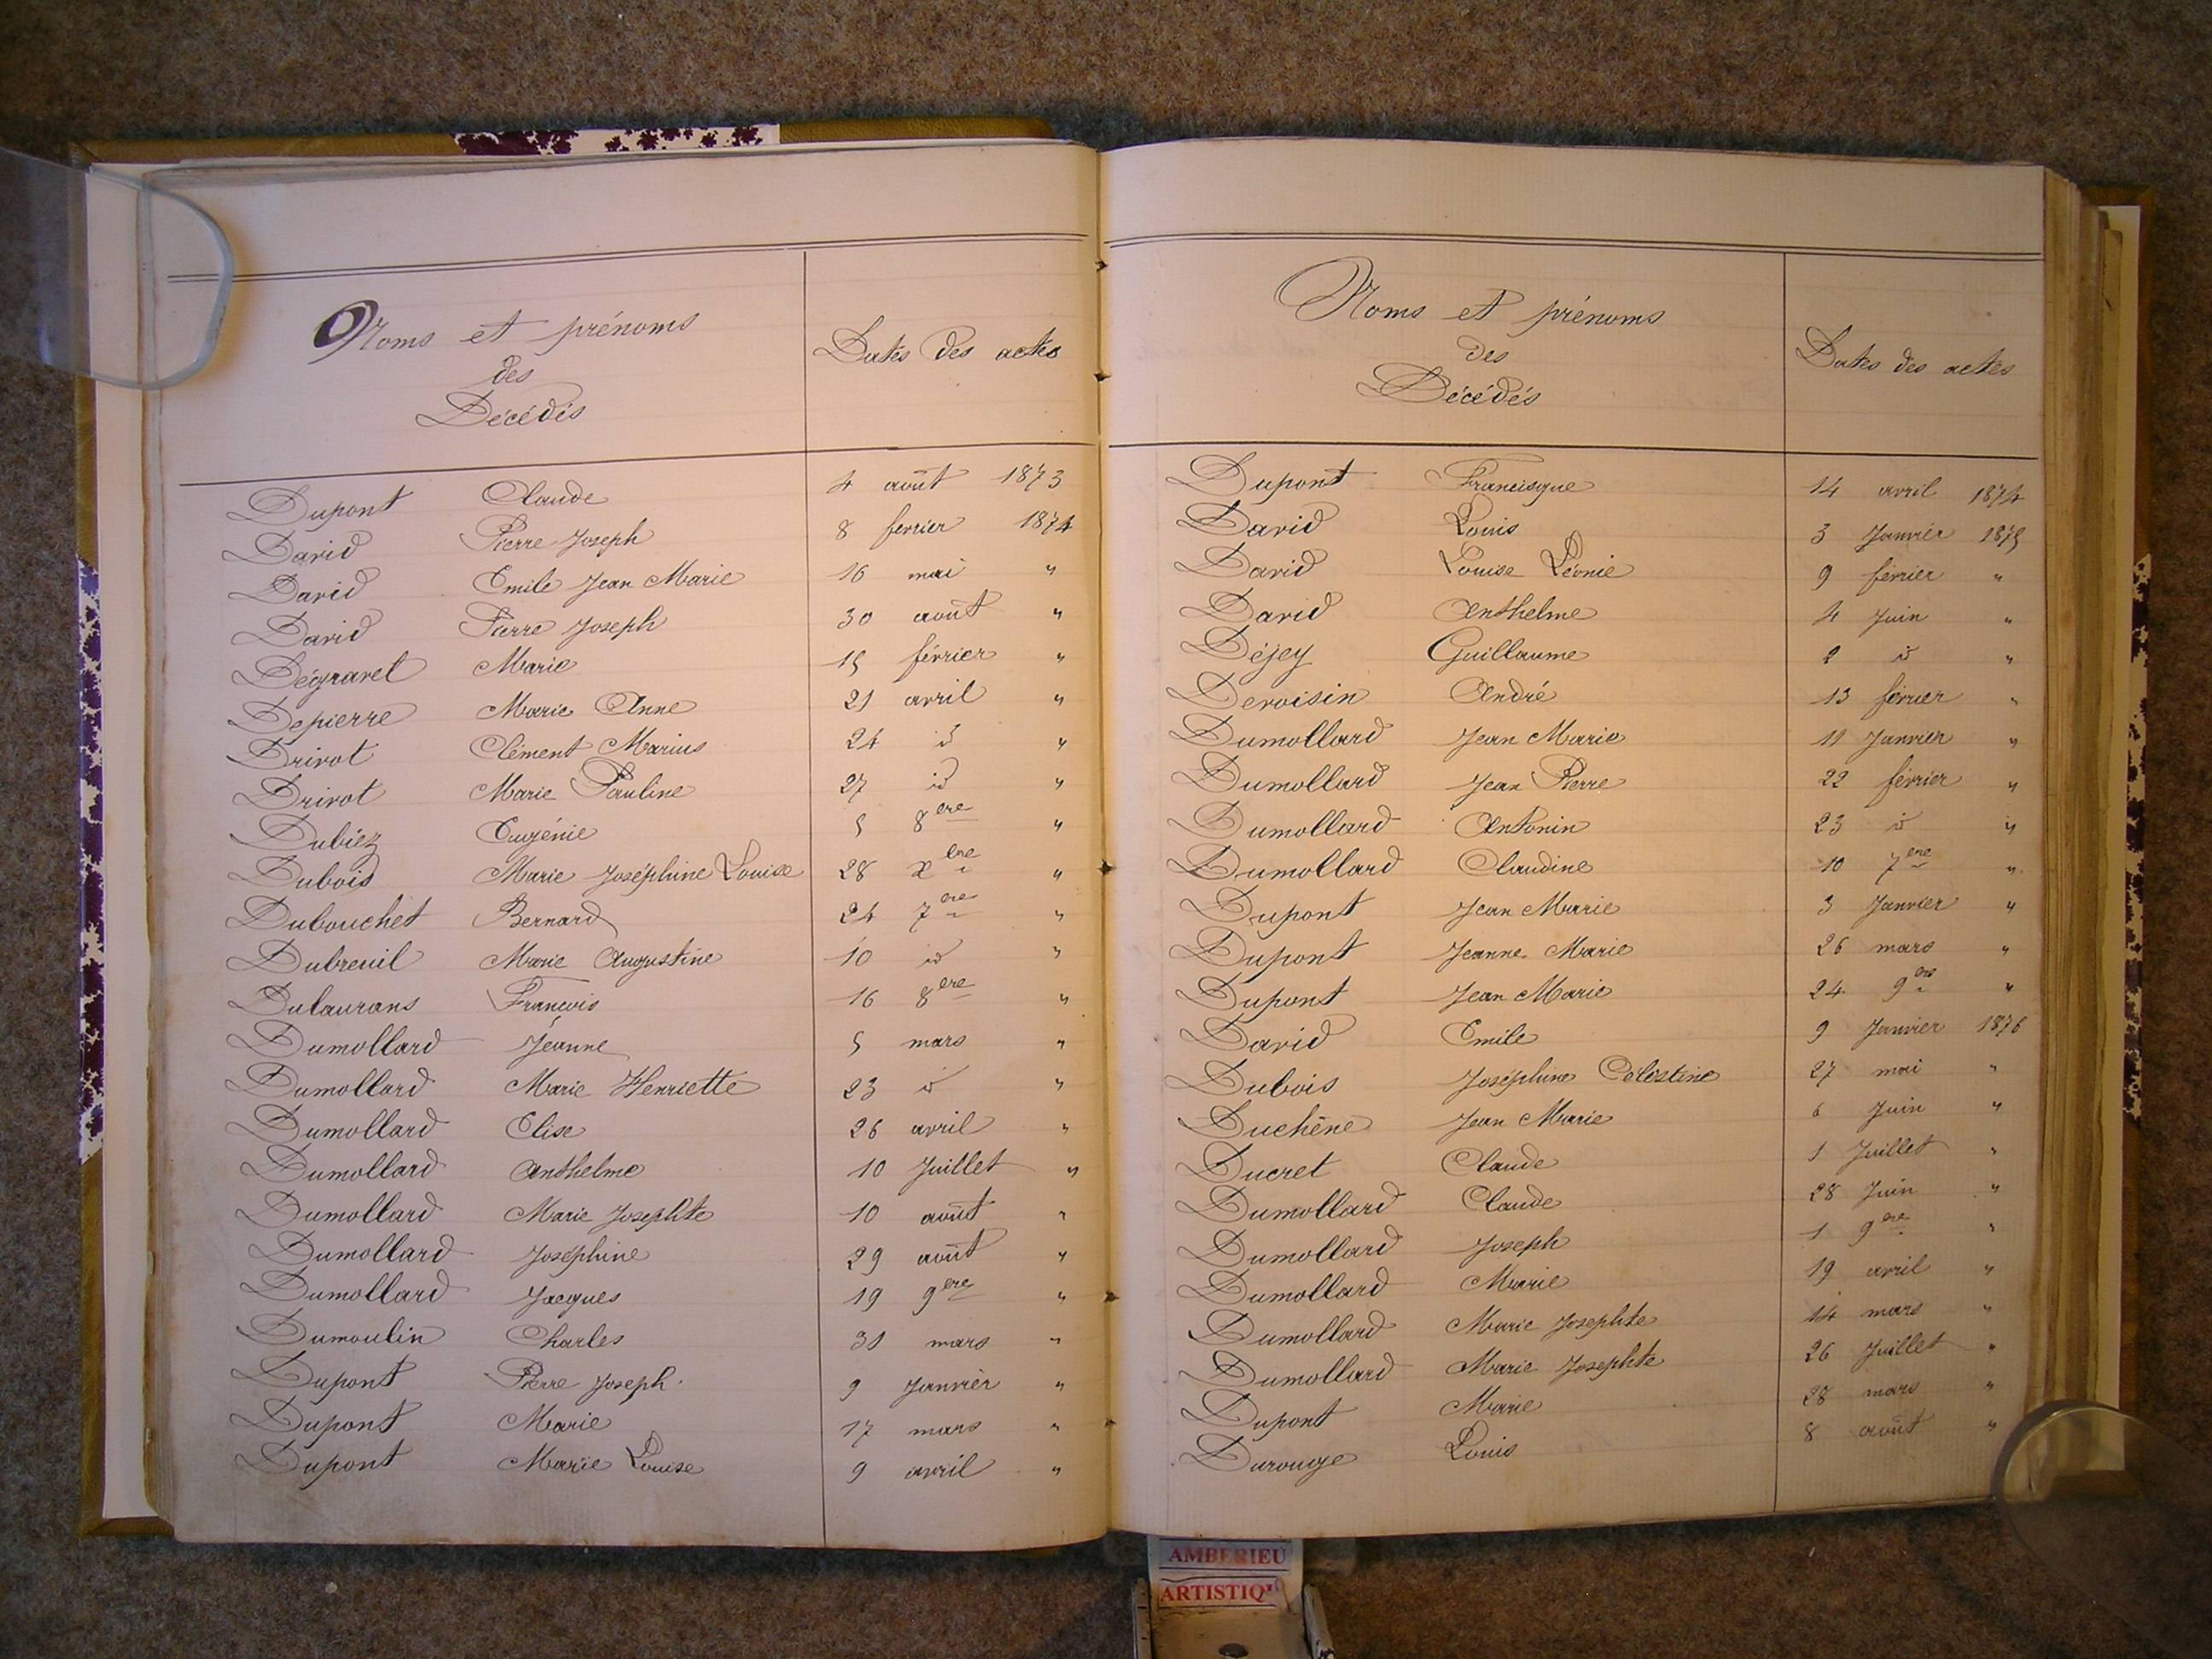 Noms et prénoms
des
Décédés
Dates des actes
Dupont Claude 4 août 1873
David Pierre Joseph 8 fevrier 1874
David Emile Jean Marie 16 mai "
David Pierre Joseph 30 août "
Dégravel Marie 15 février "
Depierre Marie Anne 21 avril "
Drivot Clément Marius 24 id "
Drivot Marie Pauline 27 id "
Dubiez Eugénie 5 8ere "
Dubois Marie Joséphine Louise 28 xbre "
Dubouchet Bernard 24 7ere "
Dubreuil Marie Augustine 10 id "
Dulaurans François 16 8ere "
Dumollard Jeanne 5 mars "
Dumollard Marie Henriette 23 id "
Dumollard Elise 26 avril "
Dumollard Anthelme 10 Juillet "
Dumollard Marie Josephte 10 août "
Dumollard Joséphine 29 août "
Dumollard Jacques 19 9ere "
Dumoulin Charles 31 mars "
Dupont Pierre Joseph 9 Janvier "
Dupont Marie 17 mars "
Dupont Marie Louise 9 avril "
Noms et prénoms
des
Décédés
Dates des actes
Dupont Francisque 14 avril 1874
David Louis 3 Janvier 1875
David Louise Léonie 9 février "
David Anthelme 4 Juin "
Déjey Guillaume 2 id "
Dervisin André 13 février "
Dumollard Jean Marie 11 Janvier "
Dumollard Jean Pierre 22 février "
Dumollard Antonin 23 id "
Dumollard Claudine 10 7ere "
Dupont Jean Marie 3 Janvier "
Dupont Jeanne Marie 26 mars "
Dupont Jean Marie 24 9ere "
David Emile 9 Janvier 1876
Dubois Joséphine Célestine 27 mai "
Duchêne Jean Marie 6 Juin "
Ducret Claude 1 Juillet "
Dumollard Claude 28 Juin "
Dumollard Joseph 1 9ere "
Dumollard Marie 19 avril "
Dumollard Marie Josephte 14 mars "
Dumollard Marie Josephte 26 Juillet "
Dupont Marie 28 mars "
Durouge Louis 8 août "
AMBERIEU
ARTISTIQ